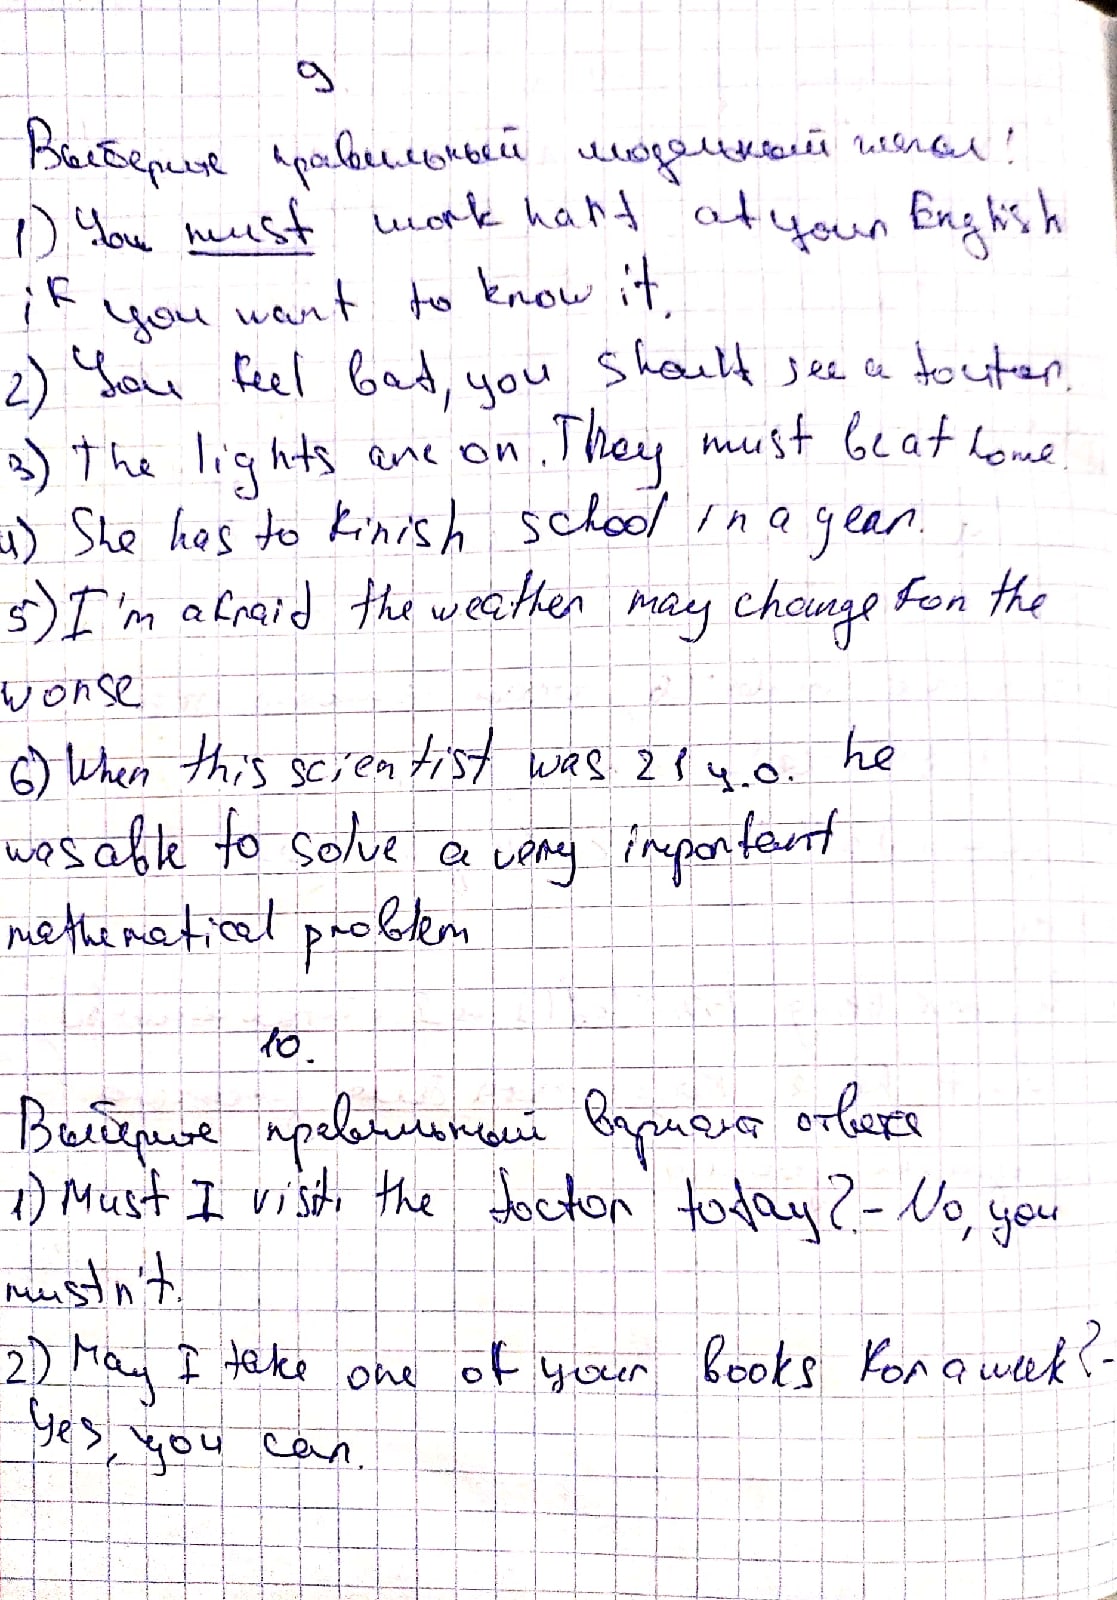 9
Выберите правильный модельный глагол!
1) You must work hard at your English
if you want to know it.
2) You feel bad, you should see a doctor.
3) The lights are on. They must be at home.
4) She has to finish school in a year.
5) I'm afraid the weather may change for the
worse
6) When this scientist was 21 y.o. he
was able to solve a very important
mathematical problem
10.
Выберите правильный вариант ответа
1) Must I visit the doctor today? - No, you
mustn't.
2) May I take one of your books for a week? -
Yes, you can.